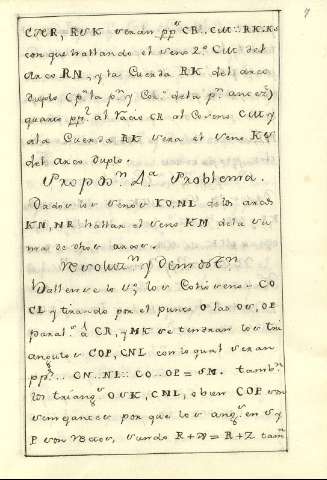 7
CMR, RVK seran pp.s CR.. CM:: RK.. KV
con que hallando el seno 2.º CM del
arco RN, y la Cuerda RK del arco
duplo (p.r la p.n y Cor.o de la p.n
quarto pp.l al Racio CR al Coseno CM y
a la Cuerda RK sera el seno KV
del arco duplo.
Propos.n 4.a Problema.
Dados los senos KO, NL de los arcos
KN, NR hallar el seno KM de la su
ma de dhos arcos.
Resoluz.n y Demost.n
Hallense los Cosenos CO
CL y tirando por el punto O las OV, OP
paral.s á CR, y MK se tendran los tri
angulos COP, CNL con lo qual seran
pp.s .. CN.. NL:: CO.. OP = VM. tamb.n
los triang.s OVK, CNL, o bien COP son
semejantes por que los ang.s en V y
P son rectos, siendo R + = R + Z tam.n